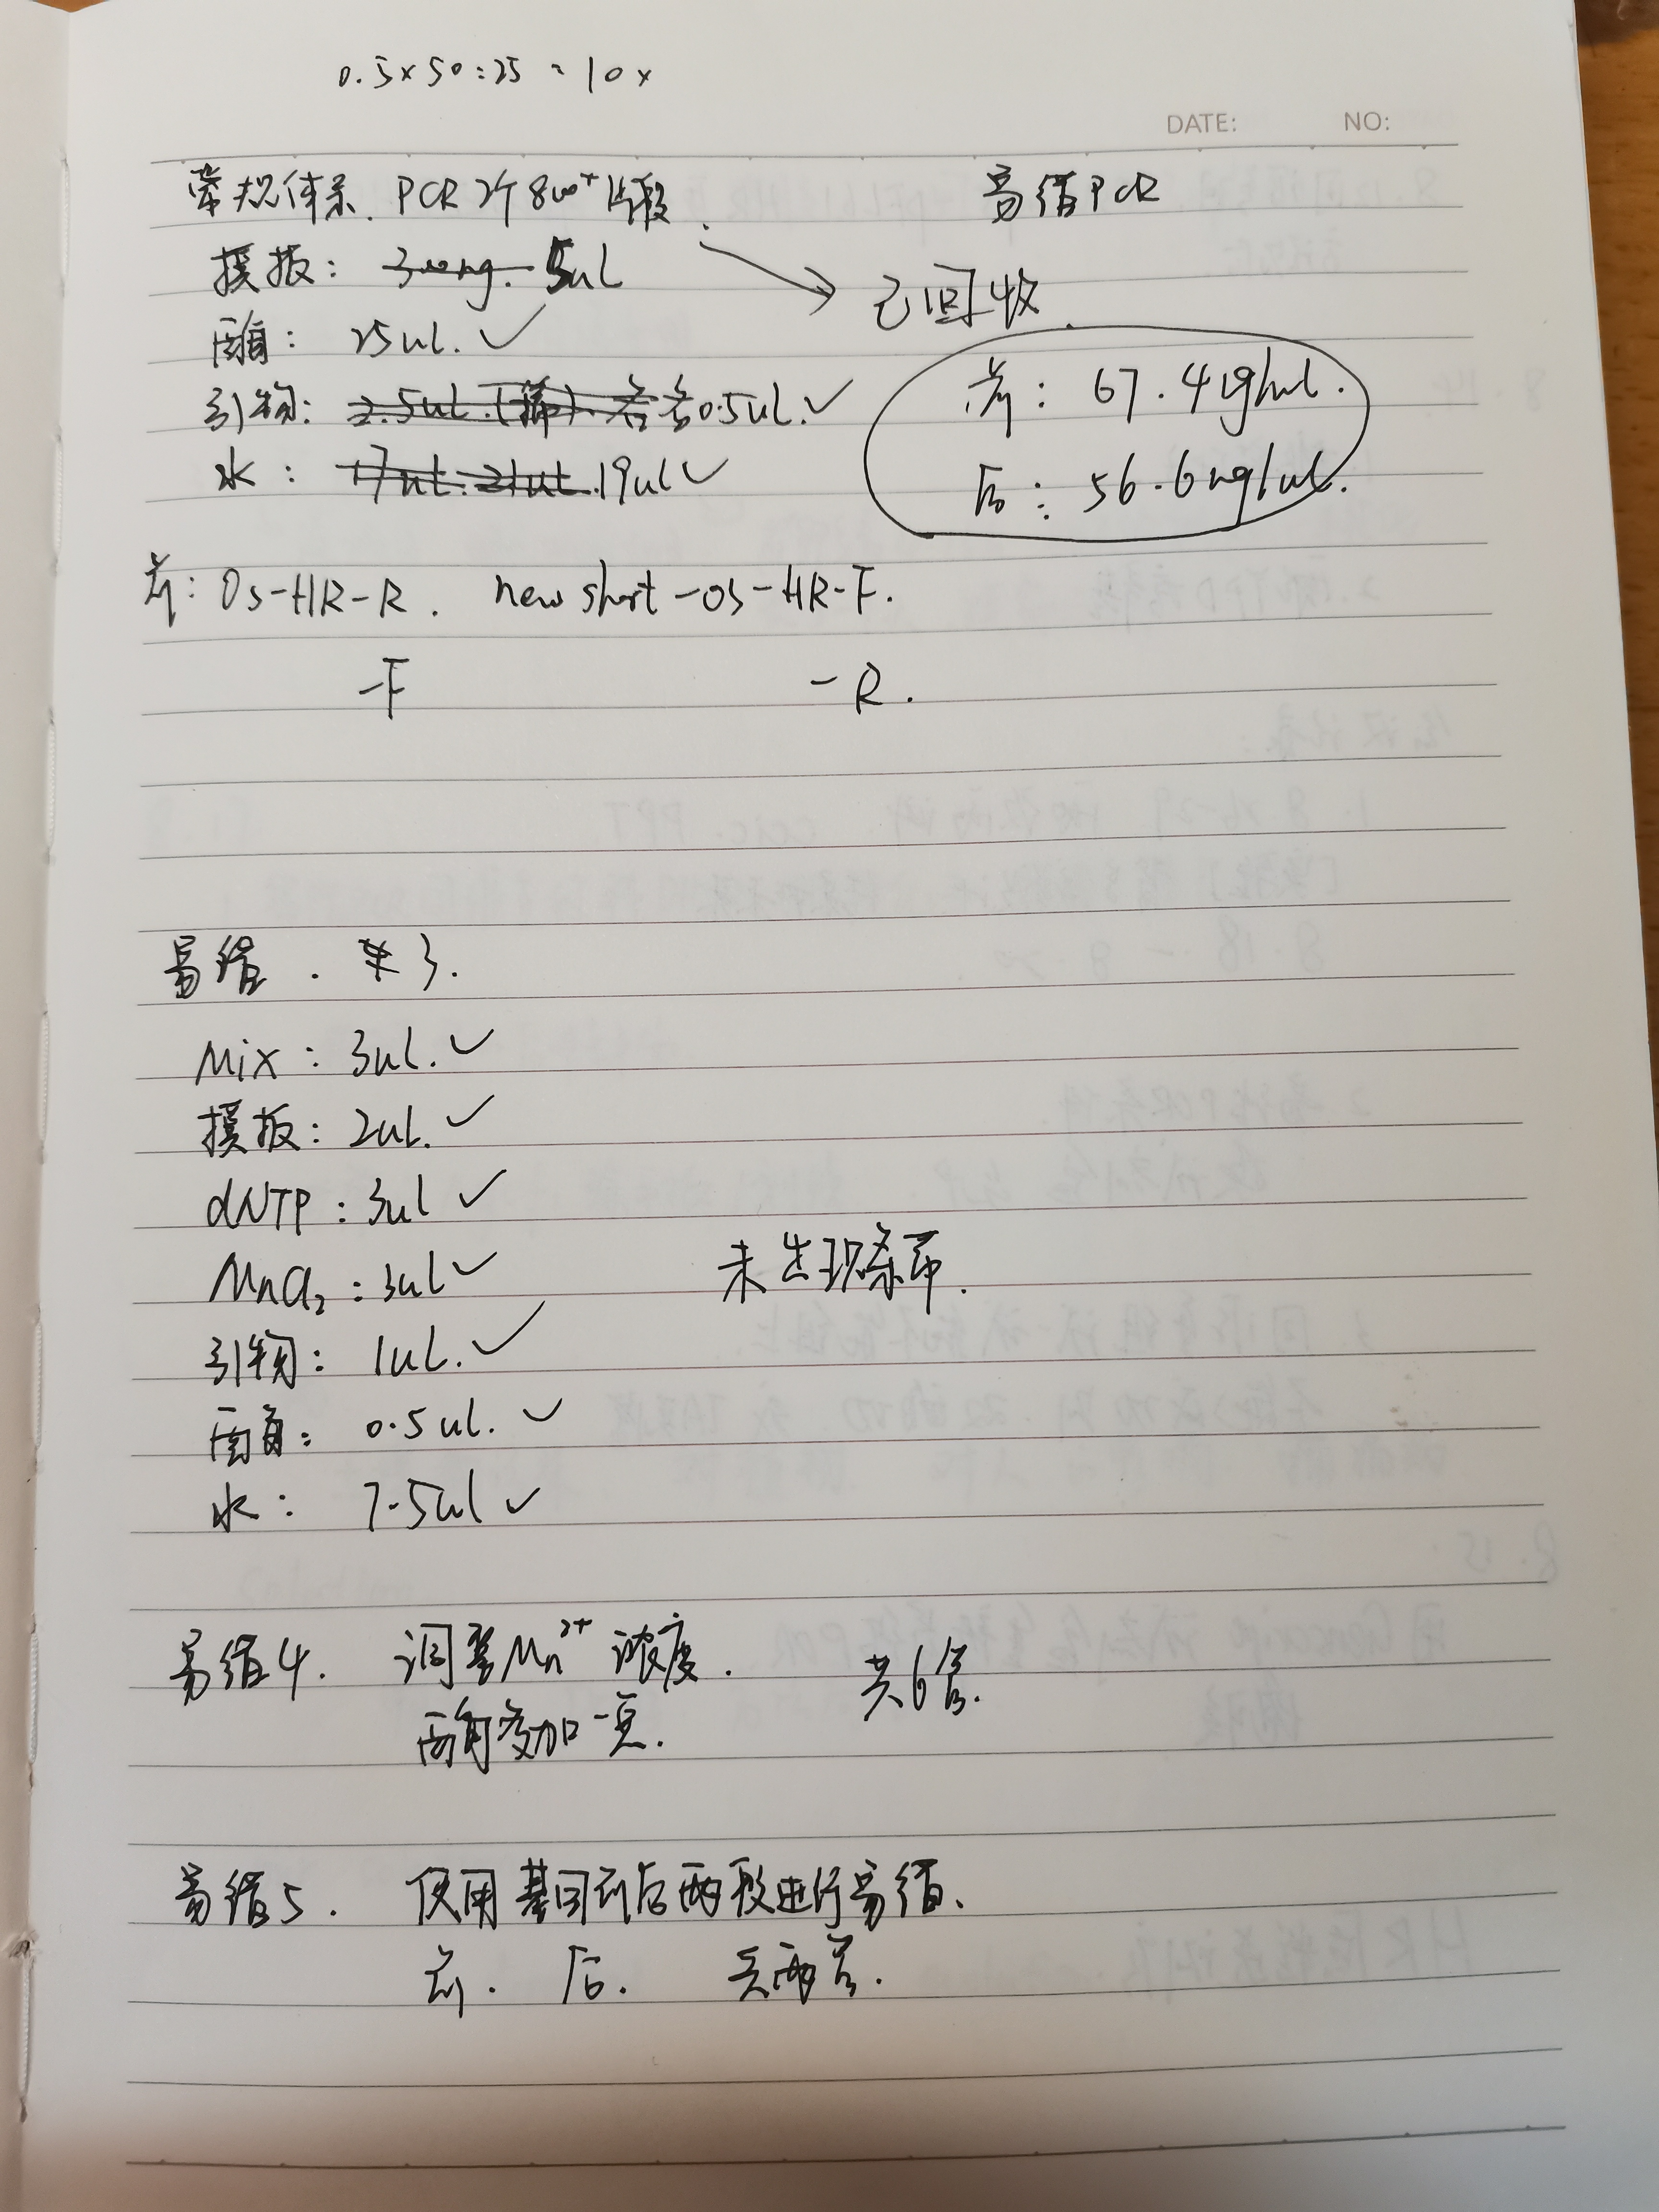 0.5×50=25 10×
DATE: NO:
常规体系. PCR 2个800+片段. 易错PCR
模板: 300ng. 5ul 已回收.
酶: 25ul. ✓
引物: 2.5ul.(稀). 各 各0.5ul. ✓ 前: 67.4ng/ul.
水: 17ul. 21ul. 19ul ✓ 后: 56.6ng/ul.
前: Os-HR-R. new short-OS-HR-F.
-F -R.
易错. 3.
Mix: 3ul. ✓
模板: 2ul. ✓
dNTP: 3ul ✓
MnCl₂: 3ul ✓ 未出现条带.
引物: 1ul. ✓
酶: 0.5ul. ✓
水: 7.5ul ✓
易错4. 调整Mn²⁺浓度. 共6管.
酶多加一点.
易错5. 使用基因前后两段进行易错.
前. 后. 共两管.